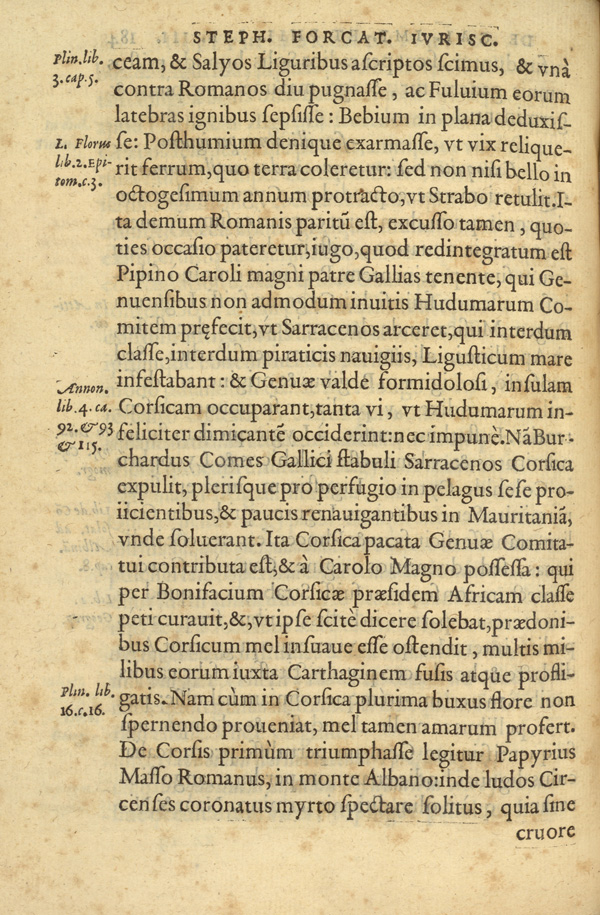 STEPH. FORCAT. IVRISC.
Plin. lib.
3. cap. 5.
ceam, & Salyos Liguribus ascriptos scimus, & vnà
contra Romanos diu pugnasse, ac Fuluium eorum
latebras ignibus sepsisse: Bebium in plana deduxis-
L. Florus
lib. 2. Epi-
tom. c. 3.
se: Posthumium denique exarmasse, vt vix relique-
rit ferrum, quo terra coleretur: sed non nisi bello in
octogesimum annum protracto, vt Strabo retulit. I-
ta demum Romanis paritũ est, excusso tamen, quo-
ties occasio pateretur, iugo, quod redintegratum est
Pipino Caroli magni patre Gallias tenente, qui Ge-
nuensibus non admodum inuitis Hudumarum Co-
mitem pręfecit, vt Sarracenos arceret, qui interdum
classe, interdum piraticis nauigiis, Ligusticum mare
infestabant: & Genuæ valde formidolosi, insulam
Annon.
lib. 4. ca.
92. & 93
& 115.
Corsicam occuparant, tanta vi, vt Hudumarum in-
feliciter dimicantẽ occiderint: nec impunè. Nã Bur-
chardus Comes Gallici stabuli Sarracenos Corsica
expulit, plerisque pro perfugio in pelagus sese pro-
iicientibus, & paucis renauigantibus in Mauritaniã,
vnde soluerant. Ita Corsica pacata Genuæ Comita-
tui contributa est, & à Carolo Magno possessa: qui
per Bonifacium Corsicæ præsidem Africam classe
peti curauit, &, vt ipse scitè dicere solebat, prædoni-
bus Corsicum mel insuaue esse ostendit, multis mi-
libus eorum iuxta Carthaginem fusis atque profli-
Plin. lib.
16. c. 16.
gatis. Nam cùm in Corsica plurima buxus flore non
spernendo proueniat, mel tamen amarum profert.
De Corsis primùm triumphasse legitur Papyrius
Masso Romanus, in monte Albano: inde ludos Cir-
censes coronatus myrto spectare solitus, quia sine
cruore